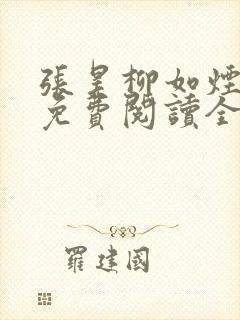 張昊柳如煙
免費閱讀全
羅建國